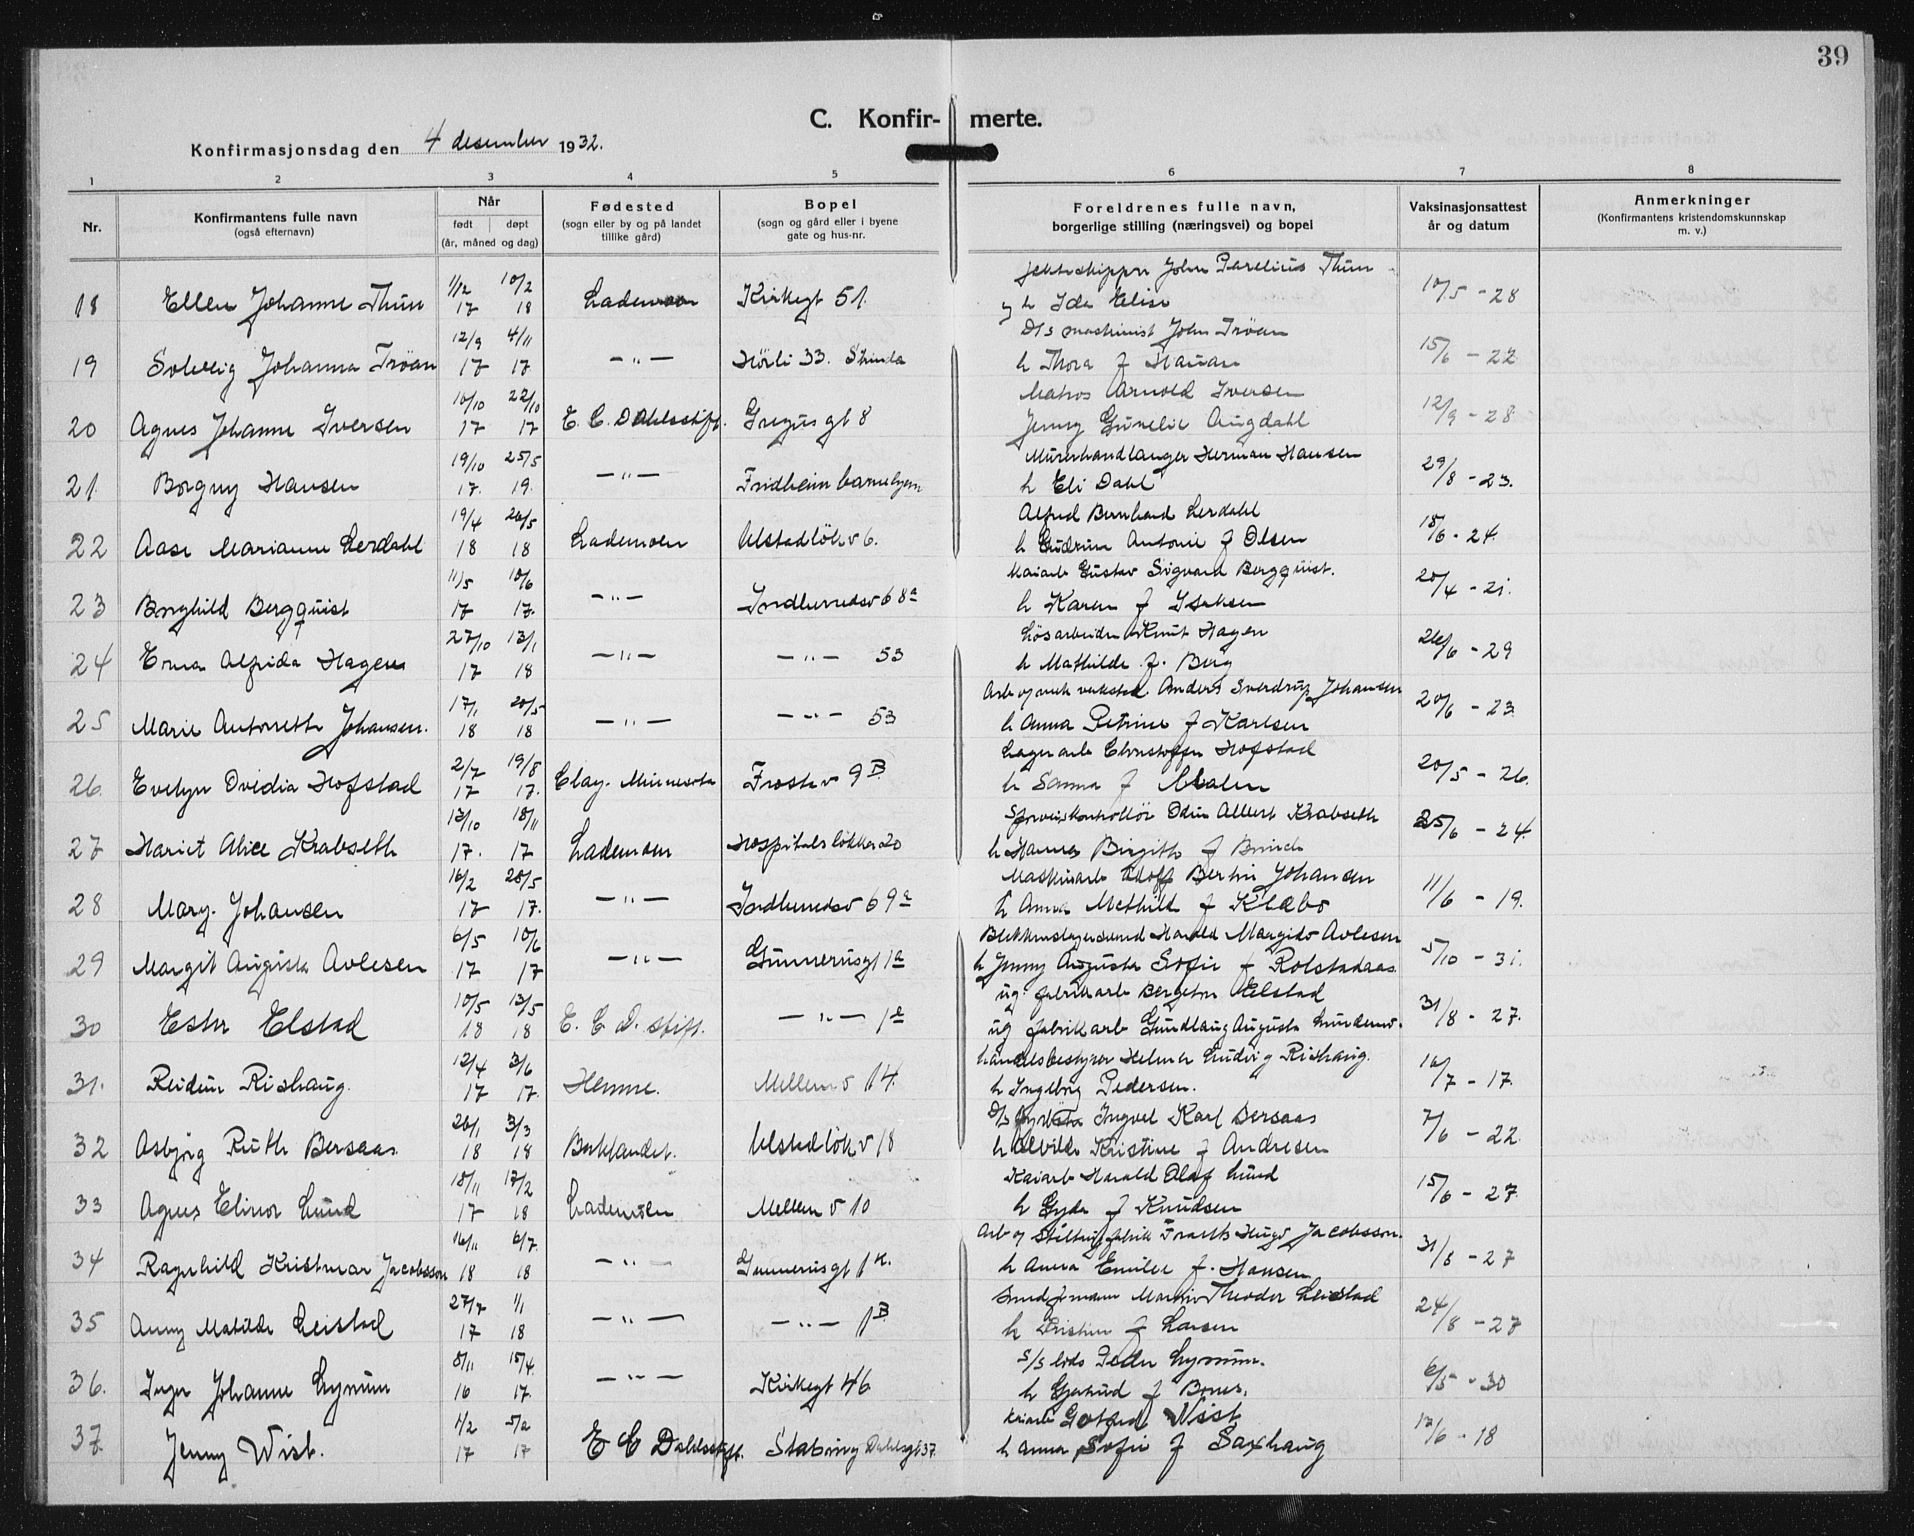 39
C. Konfir- merte.
Konfirmasjonsdag den 4 desember 1932.
1 2 3 4 5 6 7 8
Nr. Konfirmantens fulle navn (også efternavn) Når født døpt (år, måned og dag) Fødested (sogn eller by og på landet tillike gård) Bopel (sogn og gård eller i byene gate og hus-nr. Foreldrenes fulle navn, borgerlige stilling (næringsvei) og bopel Vaksinasjonsattest år og datum Anmerkninger (Konfirmantens kristendomskunnskap m. v.)
John Parelius Thun
18 Ellen Johanne Thun 1/12 17 10/2 18 Lademoen Kirkegt 51. h Ida Elise 10/5 - 28
D/s maskinist John Trøan
19 Solveig Johanna Trøan 12/9 17 4/11 17 -"- 33. Strinda h Thora f Hauan 15/6 - 22
Matros Arnold Iversen
20 Agnes Johanne Iversen 10/10 17 22/10 17 E. C. Dahlsstift. gt 8 Jenny Augdahl 12/9 - 28
Murerhandlanger Herman Hansen
21. Borgny Hansen 19/10 17. 25/5 19. -"- Fridheim barnehjem h Eli Dahl 29/8 - 23.
Alfred Bernhard Lerdahl
22 Aase Marianne Lerdahl 19/4 18 26/5 18 Lademoen Ulstadløkv 6. h Gudrun Antonie f Olsen 18/6 - 24.
Kaiarb Gustav Sigvard Bergquist.
23 Borghild Bergquist 11/5 17 10/6 17. -"- Indherredsv 68a h Karen f Isaksen 20/4 - 21.
Løsarbeider Knut Hagen
24 Erna Alfrida Hagen 27/10 17 13/1 18 -"- -"- 53 h Mathilde f. Berg 26/6 - 29
Arb og mek verksted Anders Sverdrup Johansen
25 Marie Antonette Johansen. 17/1 18 20/5 18 -"- -"- 53 h Anna Petrine f Karlsen 20/6 - 23
Lagerarb Christoffer Hofstad
26. Evelyn Ovidia Hofstad 2/7 17 19/8 17. Clay. Minnesota Frostav 9B. h Sanna f Malen 20/5 - 26.
Odin Albert Krabseth
27 Hariet Alice Krabseth 13/10 17. 18/11 17 Lademoen Hospitalsløkken 20 h Hanna Birgitte f 25/6 - 24.
Maskinarb Adolf Bertin Johansen
28 Mary. Johansen 16/2 17 28/5 17. -"- Indherredsv 69a h Anna Methilde f Klæbo 11/6 - 19.
Blikkenslagersvend Harald Margido Avlesen
29 Margit Augusta Avlesen 6/5 17 10/6 17 -"- Gunnerusgt 1a h Jenny Augusta Sofie f Rolstadaas 5/10 - 31.
ug. fabrikarb Bergeton Elstad
30 Ester Elstad 10/5 18 13/5 18 E. C. D. stift. -"- 1e ug fabrikarb Gundlaug Augusta 31/8 - 27.
handelsbestyrer Helmer Ludvig Rishaug.
31. Reidun Rishaug. 12/4 17 3/6 17. Hemne. Mellemv 14. h Ingeborg Pedersen. 16/7 - 17.
D/s fyrbøter Ingvel Karl Bersaas
32 Asbjørg Ruth Bersaas 26/1 18 3/3 18 Baklandet. Ulstadløkv 18 h Alvilde Kristine f Andresen 7/6 - 22
Kaiarb Harald Olaf Lund
33 Agnes Elinor Lund 18/11 17 17/2 18 Lademoen Mellemv 10 h Gyda f Knudsen 15/6 - 27
Arb og Hugo Jacobsson.
34 Ragnhild Kristmar Jacobsson 16/11 18 6/7 18 -"- Gunnerusgt 1 h Anna Emilie f. Hansen 31/8 - 27
Theodor Leistad
35 Anny Matilde Leistad 27/7 17 1/1 18 -"- -"- 1B h f Larsen 24/8 - 27
S/S lods Peder Lynum.
36. Inger Johanne Lynum 8/11 16 15/4. 17. -"- Kirkegt 46 h Gjertrud f 6/5 - 30
Kaiarb Gotfred Wist
37. Jenny Wist. 1/2 17 5/2 17 E C Dahlsstift. Dahlsgt 37 h Anna Sofie f Saxhaug 17/6 - 18